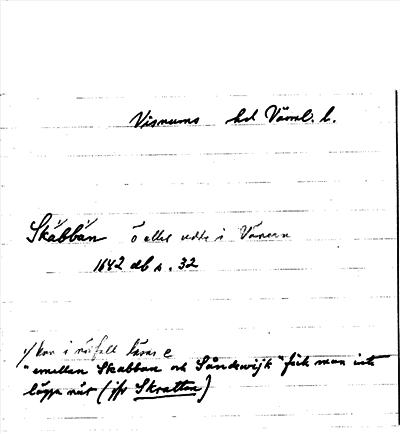 Visnums hd Värml. l.
Skäbbän ö eller udde i Vänern
1642 db s. 32
x/ kan i nödfall läsas e
"emellan Skabban och Såndewijk" fick man inte
lägga nät (jfr Skratten)